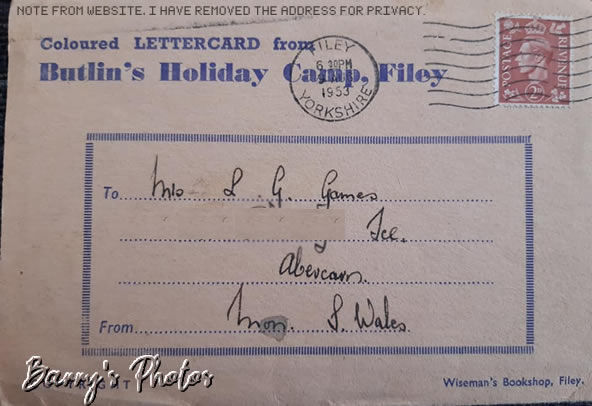 NOTE FROM WEBSITE. I HAVE REMOVED THE ADDRESS FOR PRIVACY.
Coloured LETTERCARD from
Butlin's Holiday Camp, Filey
FILEY
6.30PM
1953
YORKSHIRE
POSTAGE REVENUE
2D
To Mrs S. G. Games
Tce.
Abercarn.
From Mon. S. Wales
Barry's Photos
Wiseman's Bookshop, Filey.